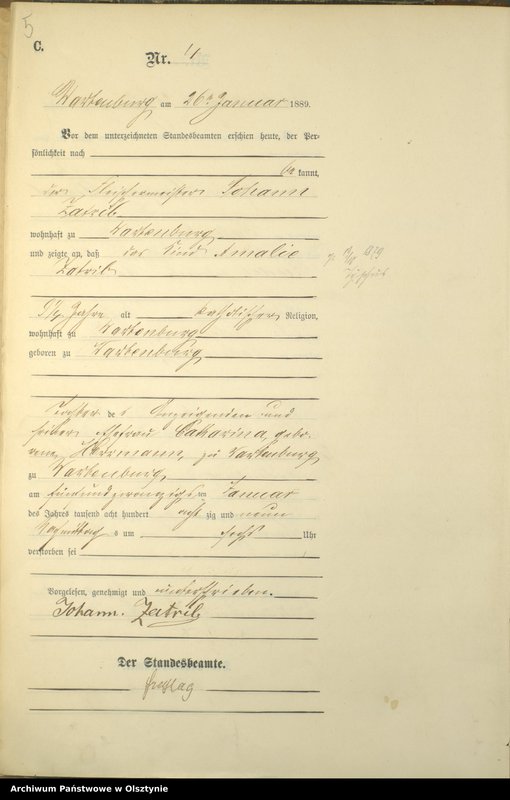 5
C.
Nr. 4
Wartenburg am 26ten Januar 1889.
Vor dem unterzeichneten Standesbeamten erschien heute, der Per-
sönlichkeit nach
be kannt,
der Fleischermeister Johann
Zatrib
wohnhaft zu Wartenburg
und zeigte an, daß das Kind Amalie
Zatrib
Jahre alt katholischer Religion,
wohnhaft zu Wartenburg
geboren zu Wartenburg
Tochter des Anzeigenden und
seiner Ehefrau Catharina, gebo-
renen Herrmann, zu Wartenburg
zu Wartenburg
am fünfundzwanzigsten Januar
des Jahres tausend acht hundert acht zig und neun
Nachmittags um sechs Uhr
verstorben sei
Vorgelesen, genehmigt und unterschrieben.
Johann Zatrib
Der Standesbeamte.
Freytag
Archiwum Państwowe w Olsztynie